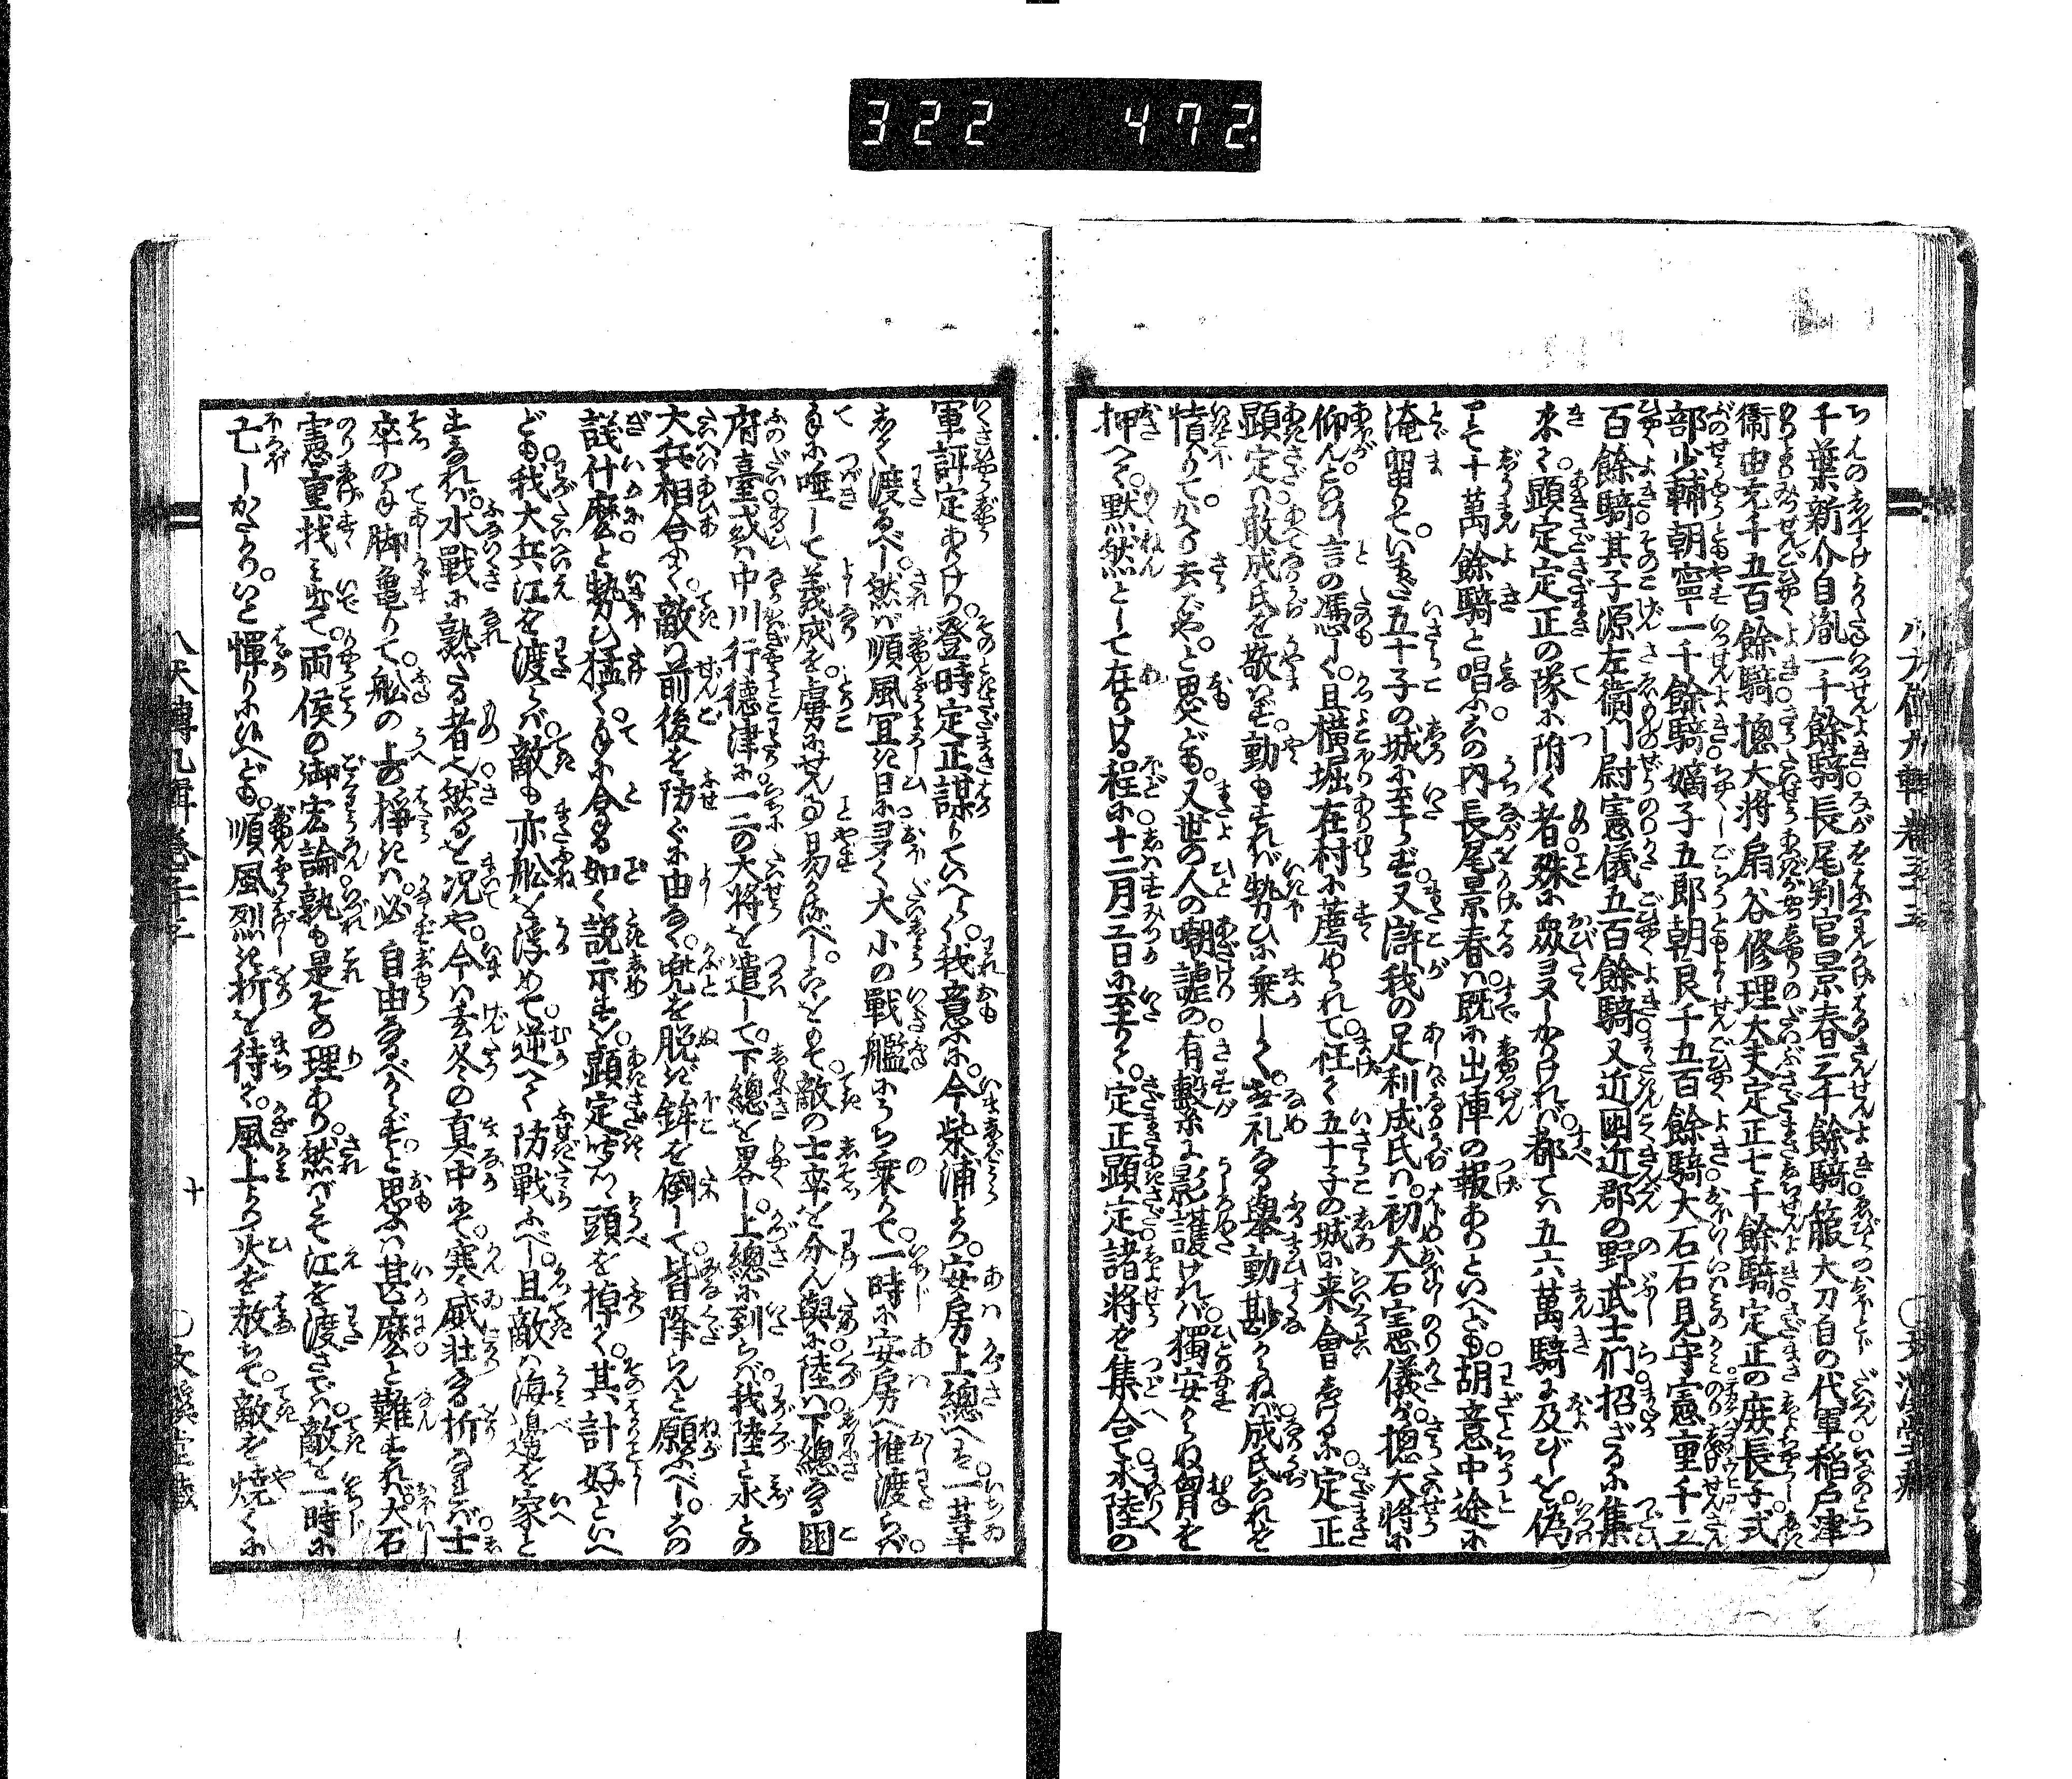 322 472
千葉新介自胤一千餘騎長尾判官景春三千餘騎箙大刀自の代軍稲戸津
衞由充千五百餘騎揔大将扇谷修理大夫定正七千餘騎定正の庶長子式
部少輔朝寧一千餘騎嫡子五郎朝良千五百餘騎大石石見守憲重千二
百餘騎其子源左衞門尉憲儀五百餘騎又近國近郡の野武士们招ざるに集
来て顕定定正の隊に附く者殊に夥しかりければ都ては五六萬騎に及びしを偽
りて十萬餘騎と唱ふその内長尾景春は既に出陣の報ありといへども胡意中途に
淹留りていまだ五十子の城に至らず又滸我の足利成氏は初大石憲儀が揔大将に
仰んといひし言の馮しく且横堀在村に薦められて枉て五十子の城に来會しけるに定正
顕定は敢成氏を敬はず動もすれば勢ひに乗しく無礼なる擧動尠からねば成氏これを
憤りてかへり去ばやと思へども又世の人の嘲謔の有繋に影護ければ獨安からぬ胸を
押へて黙然として在りける程に十二月三日に至りて定正顕定諸将を集合て水陸の
軍評定ありけり登時定正謀りていへらく我意ふに今柴浦より安房上總へは一葦
しく渡るべし然ば順風冝き日に夛く大小の戰艦にうち乗りて一時に安房へ推渡らば
手に唾して義成を虜にせん事易かるべしこをもて敵の士卒を分ん與に陸は下總なる國
府臺或は中川行德津に一二の大将を遣して下總を畧し上總に到らば我陸と水との
大兵相合ふて敵の前後を防ぐに由なく兜を脱ぎ鉾を倒して皆降らんと願ふべしこの
議什麼と勢ひ猛く手に合る如く説示すを顕定听つゝ頭を掉て其計好といへ
ども我大兵江を渡らば敵も亦舩を浮めて逆へて防戰ふべし且敵は海邊を家と
すなれば水戰に熟たる者也然るを况や今は玄冬の真中にて寒威壮なる折なれば士
卒の手脚亀りて舩の上の挊きは必自由なるべからずと思ふは甚麼と難ずれば大石
憲重找み出て両侯の御宏論孰も是その理あり然ばとて江を渡さでは敵を一時に
亡しがたかりいと憚りに候へども順風烈き折を待て風上より火を放ちて敵を焼くに
十